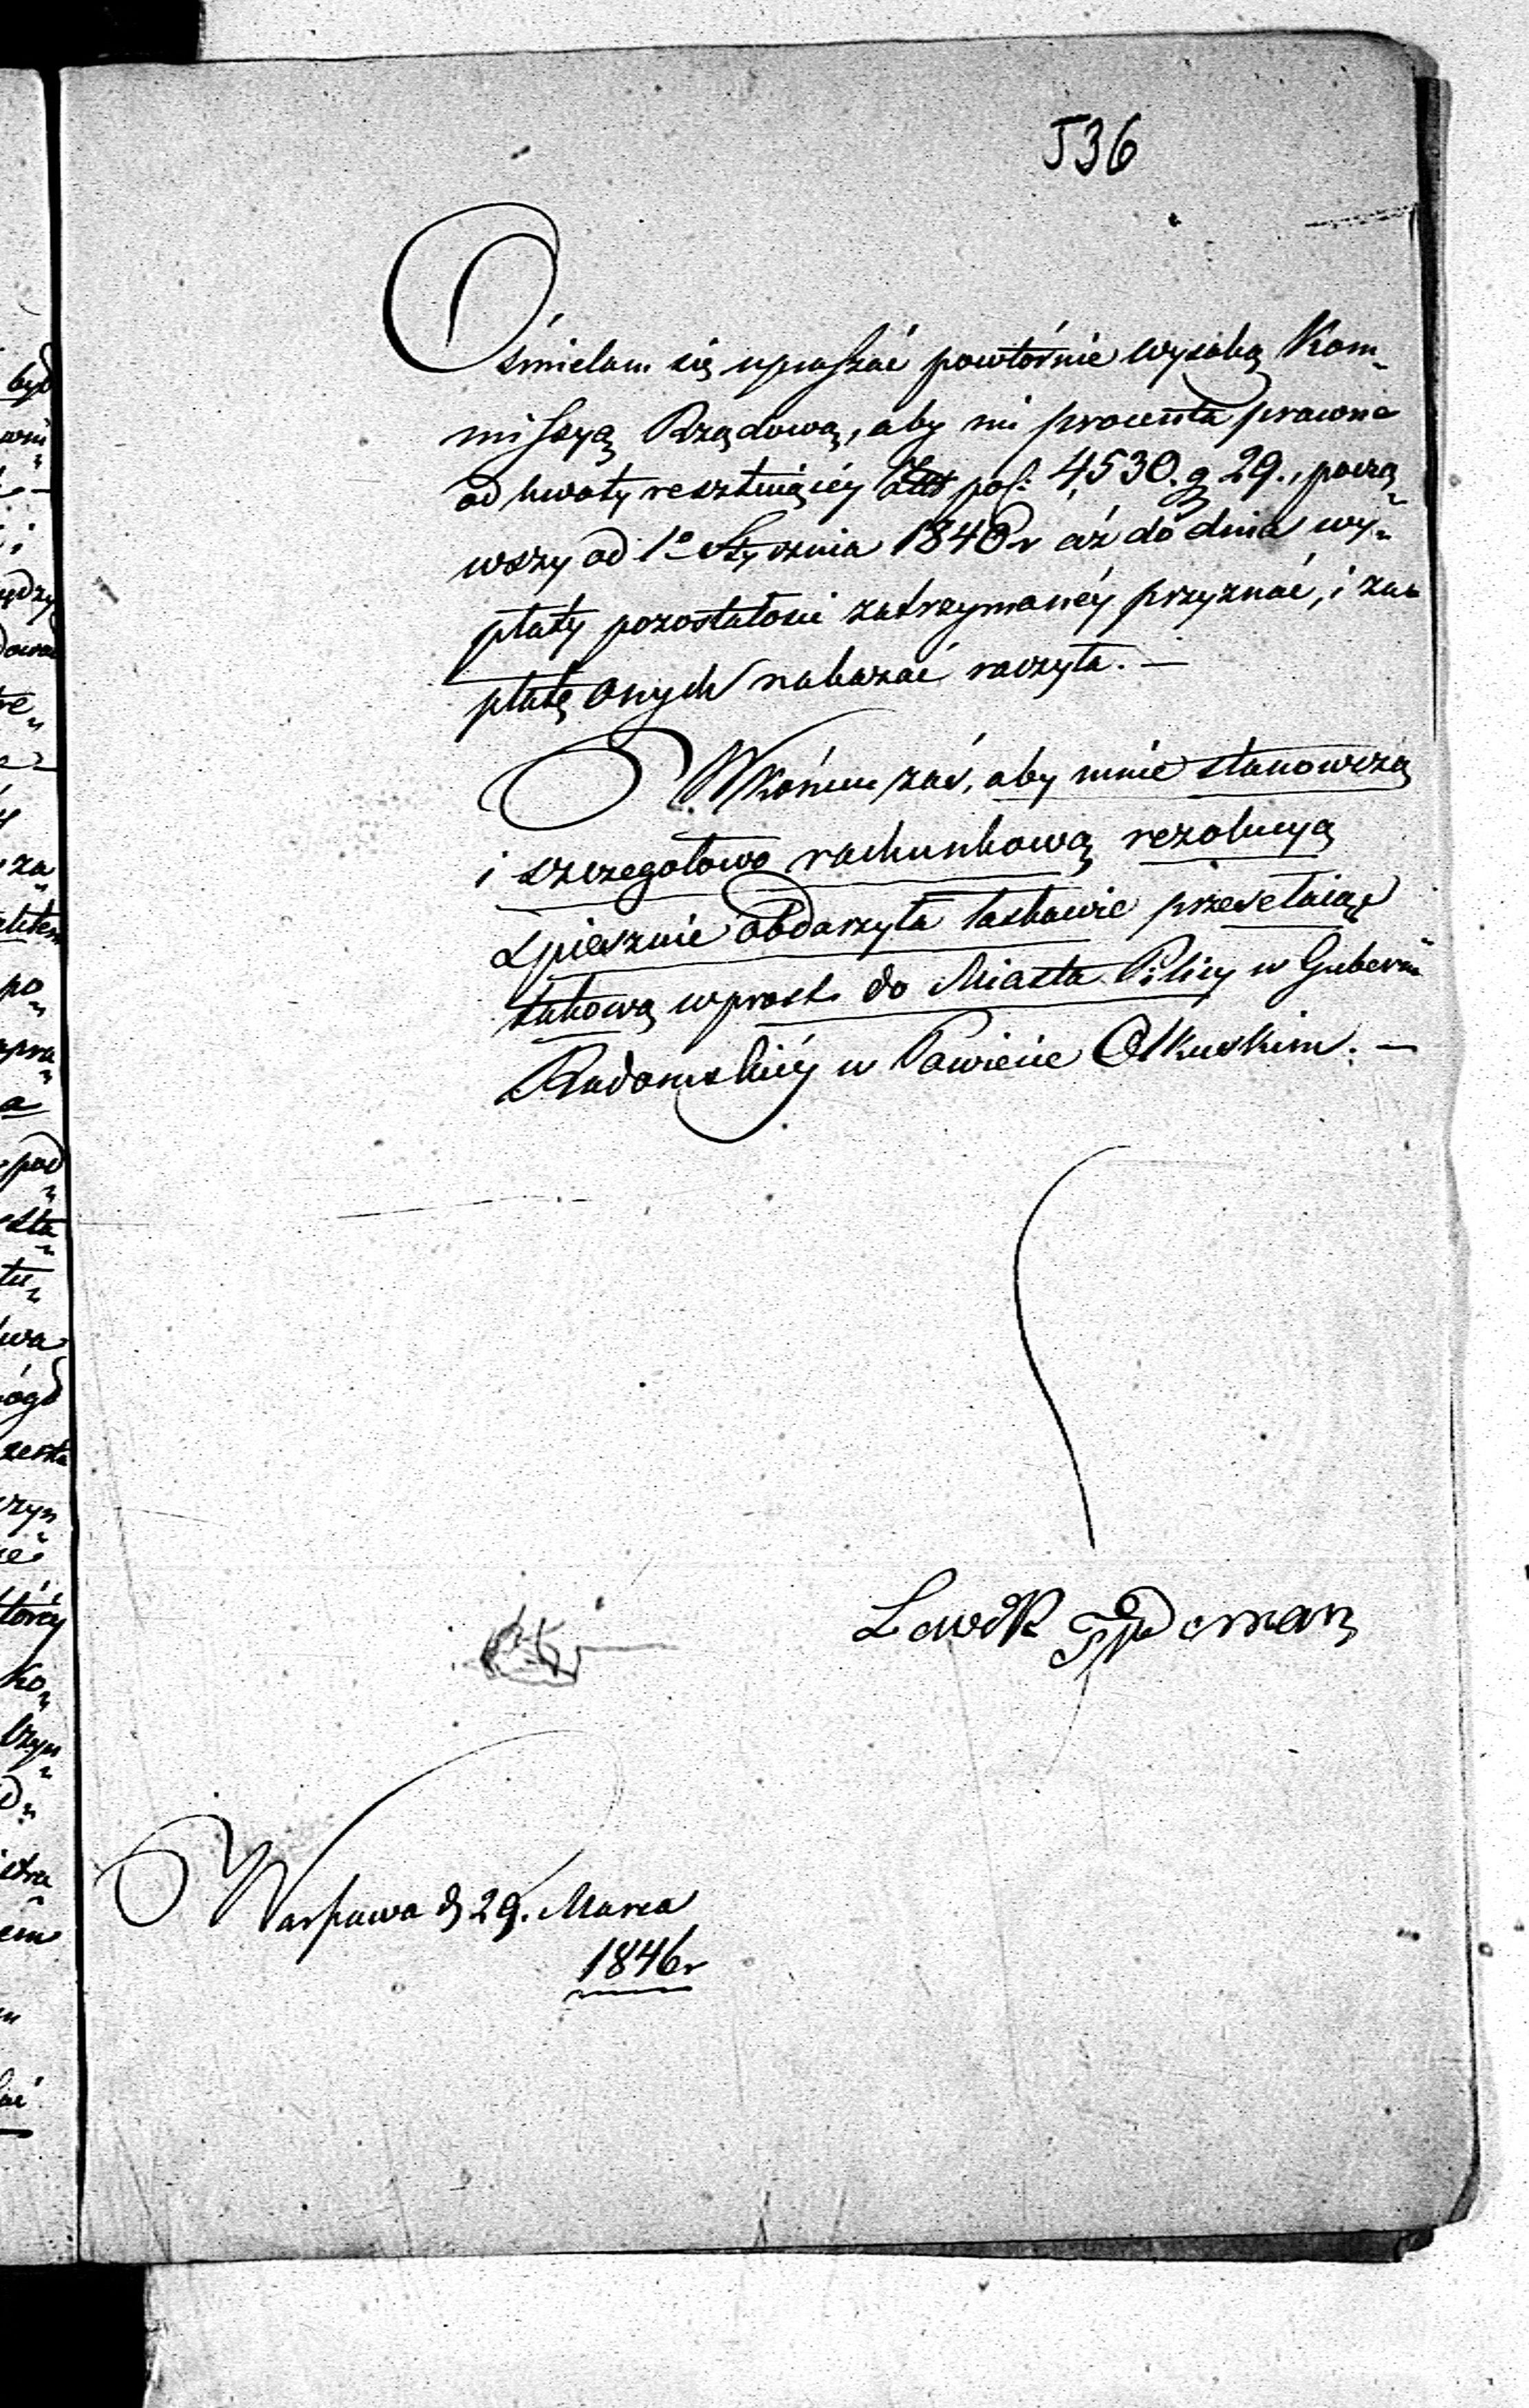 536
Ośmielam się upraszać powtórnie Wysoką Kom-
missyą Rządową, aby mi procenta prawne
od kwoty resztuiącéy pos: 4,530. g 29., począ-
wszy od 1º Stycznia 1840r aż do dnia wy-
płaty pozostałości zatrzymanéy przyznać, i za-
płatę onych nakazać raczyła. —
Wkońcu zaś, aby mnie stanowczą
i szczegołowo rachunkową rezolucyą
spiesznie obdarzyła łaskawie przesełaiąc
takową wprost do Miasta Pilicy w Gubernii
Radomskiéy w Powiecie Olkuskim. —
Lewek
Warszawa d 29. Marca
1846r